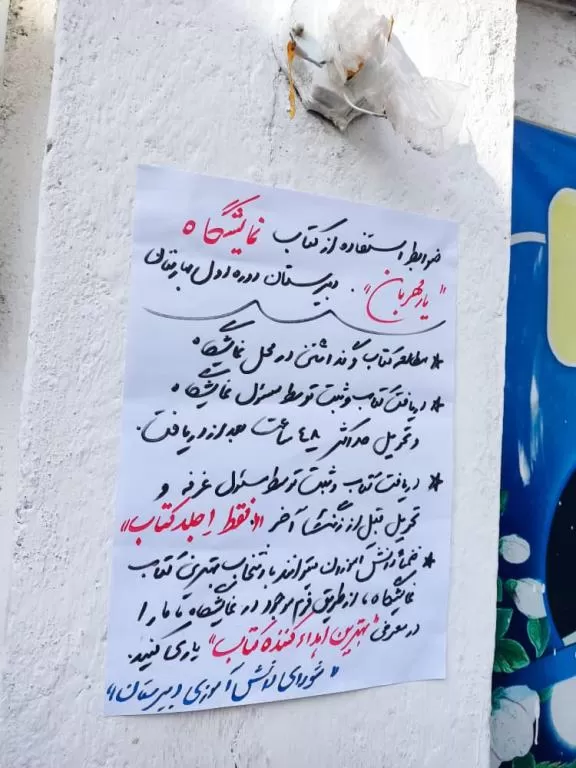 ضوابط استفاده از کتاب نمایشگاه
"یار مهربان". دبیرستان دوره اول بهارستان
* مطالعه کتاب و گذاشتن در محل نمایشگاه
* دریافت کتاب و ثبت توسط مسئول نمایشگاه
و تحویل حداکثر ۴۸ ساعت بعد از دریافت.
* دریافت کتاب و ثبت توسط مسئول غرفه و
تحویل قبل از زنگ آخر "فقط ۱ جلد کتاب"
* ضمناً دانش آموزان میتوانند با انتخاب بهترین کتاب
نمایشگاه، از طریق فرم موجود در نمایشگاه تا ما را
در معرفی "بهترین اهداء کننده کتاب" یاری کنید.
"شورای دانش آموزی دبیرستان"